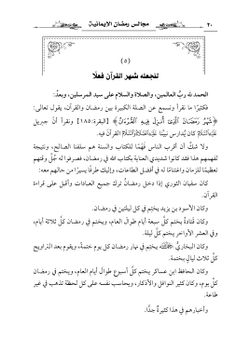 ٢٠ مجالس رمضان الإيمانية
(٥)
لنجعله شهر القرآن فعلًا
الحمد لله ربِّ العالمين، والصلاة والسلام على سيد المرسلين، وبعد:
فكثيرًا ما نقرأ ونسمع عن الصلة الكبيرة بين رمضان والقرآن، يقول تعالى:
﴿شَهْرُ رَمَضَانَ ٱلَّذِىٓ أُنزِلَ فِيهِ ٱلْقُرْءَانُ﴾ [البقرة: ١٨٥] ونقرأ أنَّ جبريل
كان يُدارس نبيَّنا القرآن في رمضان.
ولا شكَّ أن أقرب الناس فَهْمًا للكتاب والسنة هم سلفنا الصالح، ونتيجة
لفهمهم هذا فقد كانوا شديدي العناية بكتاب الله في رمضان، فصرفوا له جُلَّ وقتهم
تعظيمًا للزمان واغتنامًا له في أفضل الطاعات، وإليك طرفًا يسيرًا من حالهم معه:
كان سفيان الثوري إذا دخل رمضانُ ترك جميع العبادات وأقبل على قراءة
القرآن.
وكان الأسود بن يزيد يختِم في كل ليلتين في رمضان.
وكان قَتادةُ يختم كلَّ سبعة أيام طوال العام، ويختم في رمضان كلَّ ثلاثة أيام،
وفي العشر الأواخر يختم كلَّ ليلة.
وكان البخاريُّ يختم في نهار رمضان كل يوم ختمةً، ويقوم بعد التراويح
كلَّ ثلاث ليالٍ بختمة.
وكان الحافظ ابن عساكر يختم كلَّ أسبوع طوال أيام العام، ويختم في رمضان
كلَّ يوم، وكان كثير النوافل والأذكار، ويحاسب نفسه على كل لحظة تذهب في غير
طاعة.
وأخبارهم في هذا كثيرةٌ جدًّا.